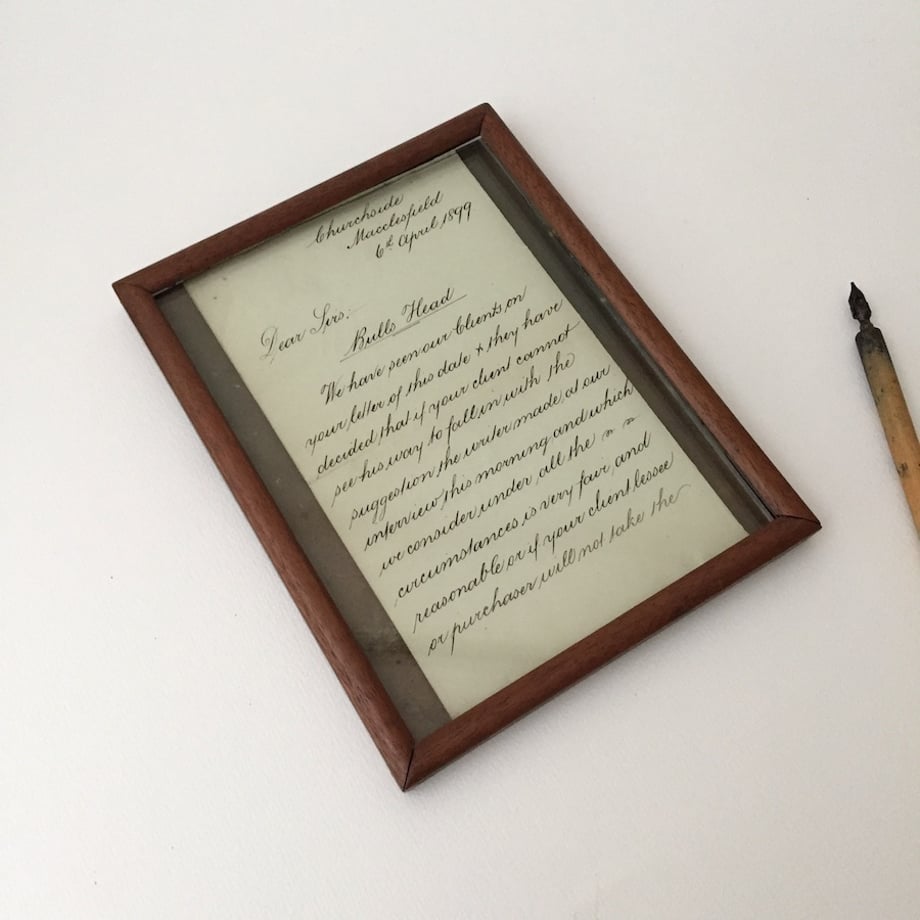 Churchside
Macclesfield
6th April, 1899
Dear Sirs:
Bulls Head
We have seen our Clients on
your letter of this date & they have
decided that if your client cannot
see his way to fall in with the
suggestion the writer made at our
interview this morning and which
we consider under all the
circumstances is very fair and
reasonable or if your client lessee
or purchaser will not take the